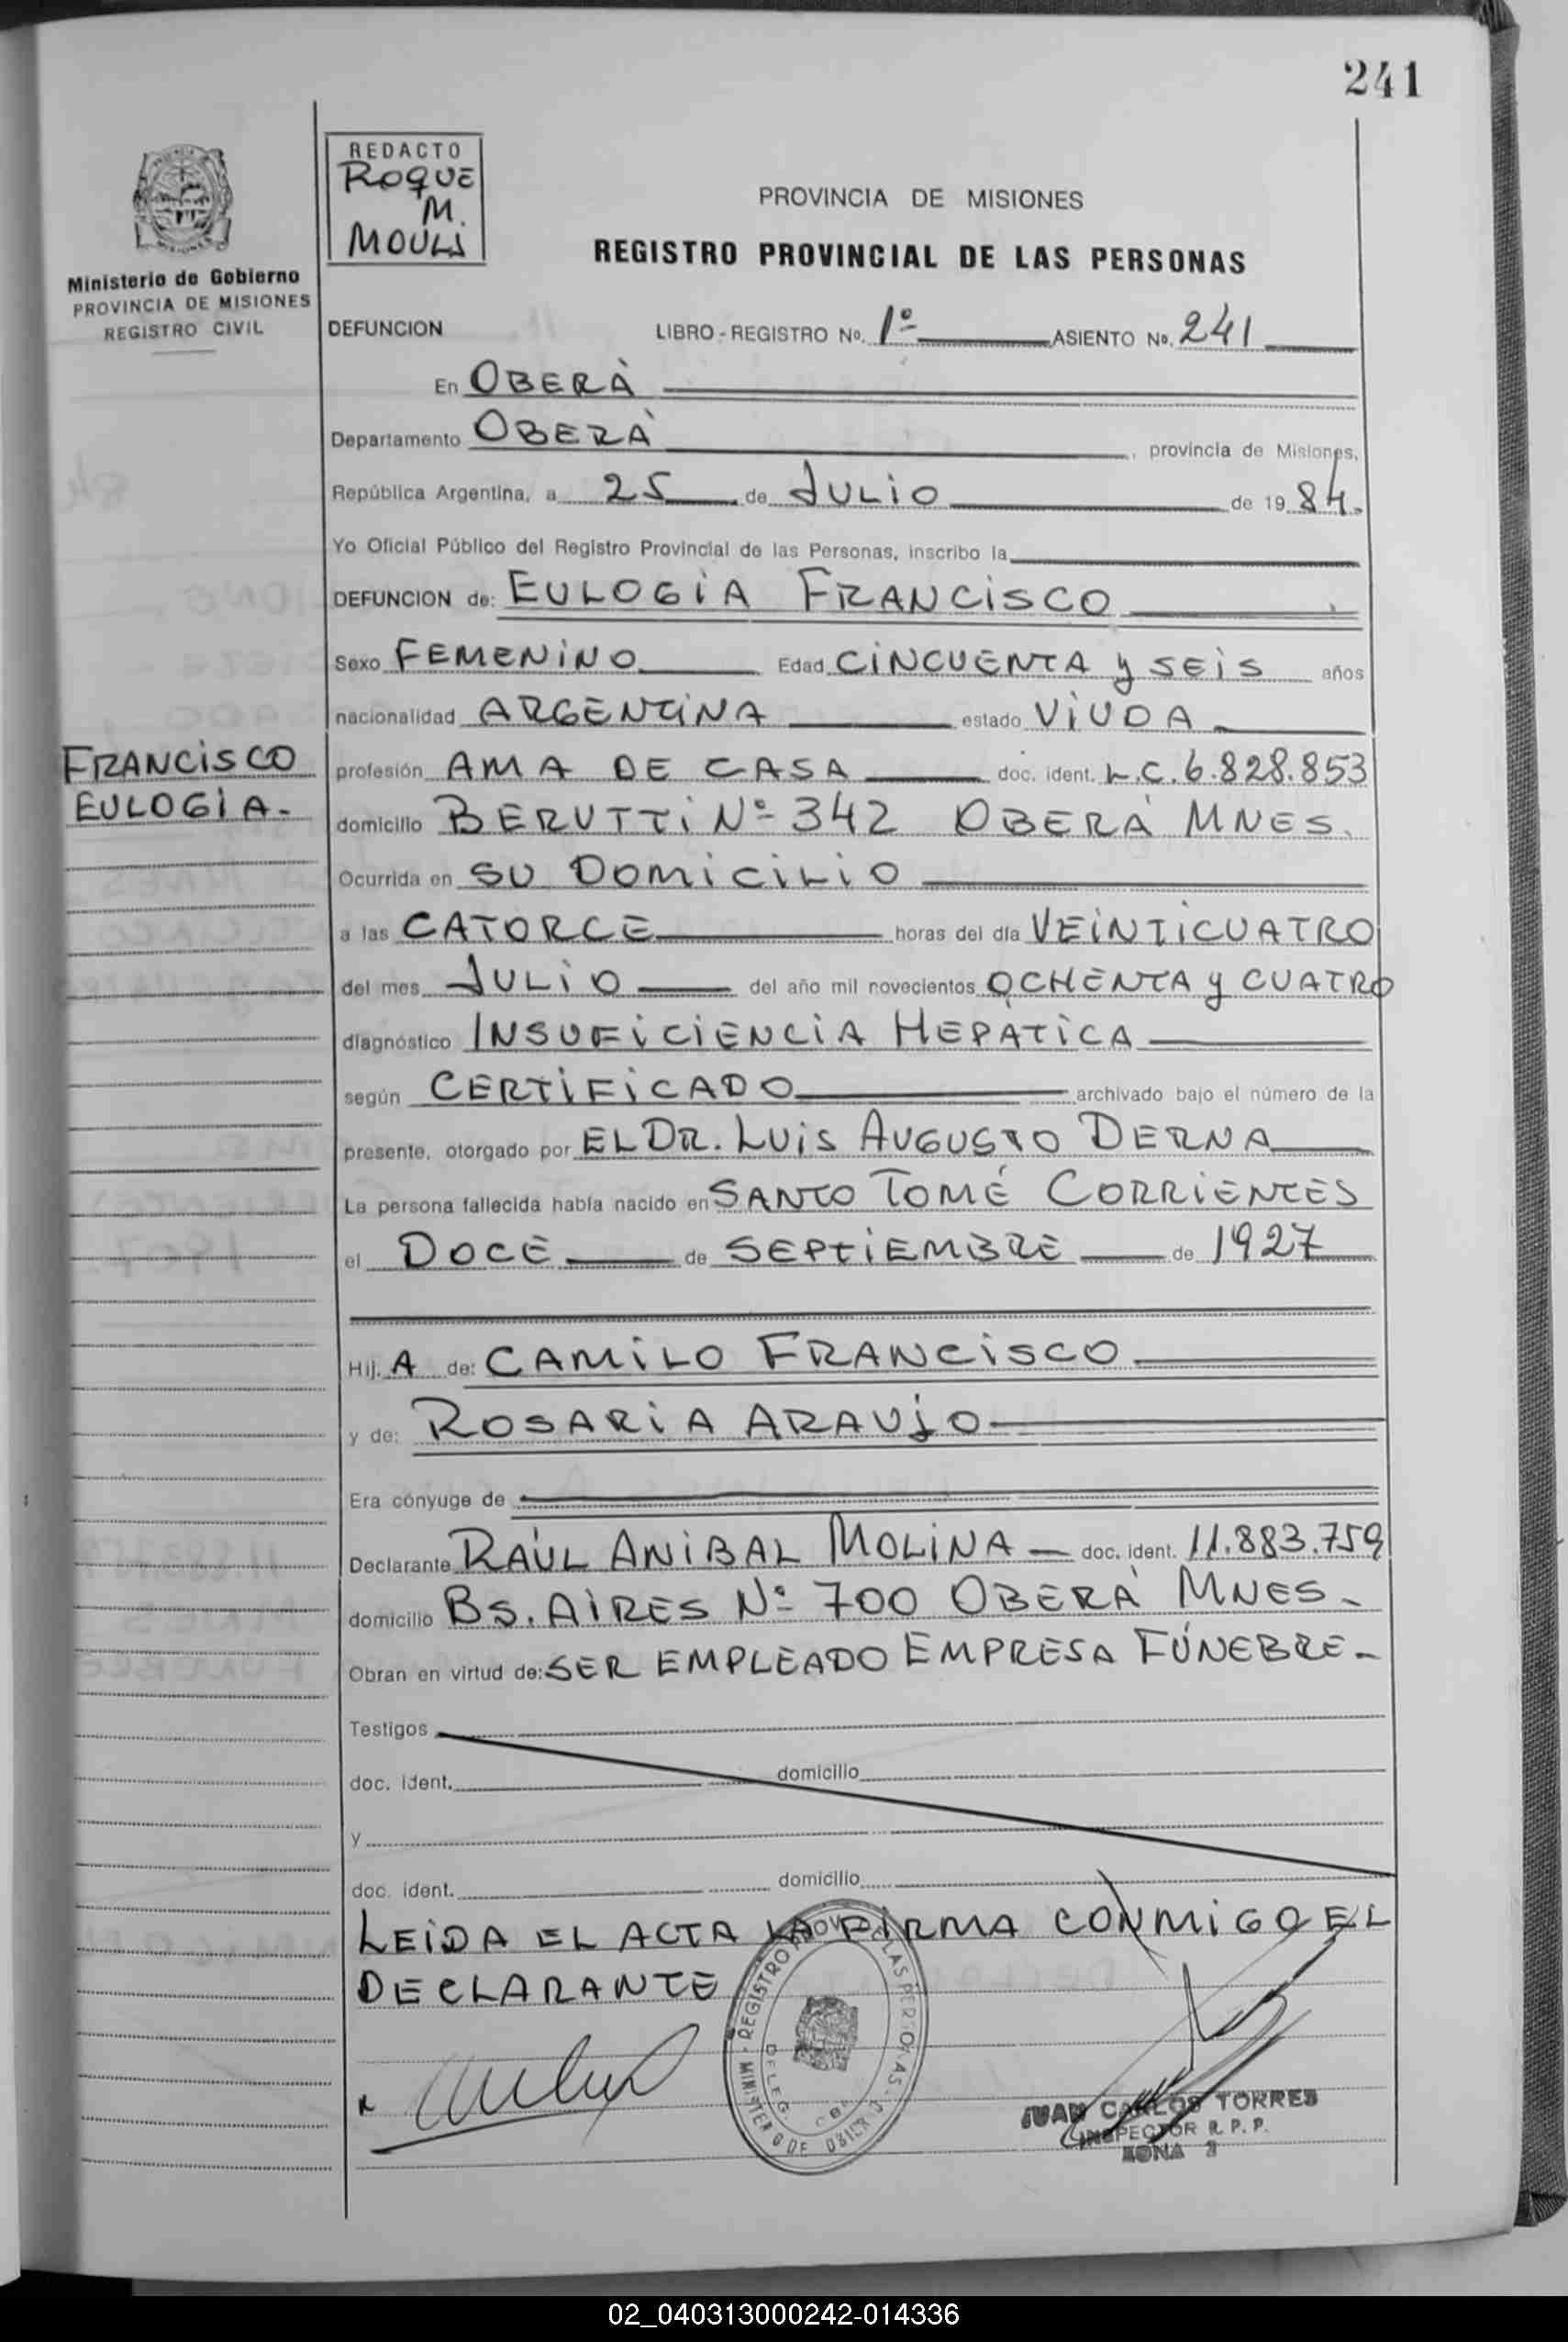 241
REDACTO
ROQUE
M.
MOULI
Ministerio de Gobierno
PROVINCIA DE MISIONES
REGISTRO CIVIL
PROVINCIA DE MISIONES
REGISTRO PROVINCIAL DE LAS PERSONAS
DEFUNCION LIBRO-REGISTRO No. 1º ASIENTO No. 241
En OBERÀ
Departamento OBERÀ, provincia de Misiones,
República Argentina, a 25 de JULIO de 1984.
Yo Oficial Público del Registro Provincial de las Personas, inscribo la
DEFUNCION de: EULOGIA FRANCISCO
Sexo FEMENINO Edad CINCUENTA y SEIS años
nacionalidad ARGENTINA estado VIUDA
FRANCISCO
EULOGIA.-
profesión AMA DE CASA doc. ident. L.C. 6.828.853
domicilio BERUTTI Nº 342 OBERÀ MNES.
Ocurrida en SU DOMICILIO
a las CATORCE horas del día VEINTICUATRO
del mes JULIO del año mil novecientos OCHENTA y CUATRO
diagnóstico INSUFICIENCIA HEPATICA
según CERTIFICADO archivado bajo el número de la
presente, otorgado por EL DR. LUIS AUGUSTO DERNA
La persona fallecida había nacido en SANTO TOMÉ CORRIENTES
el DOCE de SEPTIEMBRE de 1927
Hij. A de: CAMILO FRANCISCO
y de: ROSARIA ARAUJO
Era cónyuge de
Declarante RAÚL ANIBAL MOLINA — doc. ident. 11.883.759
domicilio BS. AIRES Nº 700 OBERÀ MNES.
Obran en virtud de: SER EMPLEADO EMPRESA FÚNEBRE.-
Testigos
doc. ident. domicilio
y
doc. ident. domicilio
LEIDA EL ACTA LA FIRMA CONMIGO EL
DECLARANTE
JUAN CARLOS TORRES
INSPECTOR R. P. P.
ZONA 2
02_040313000242-014336